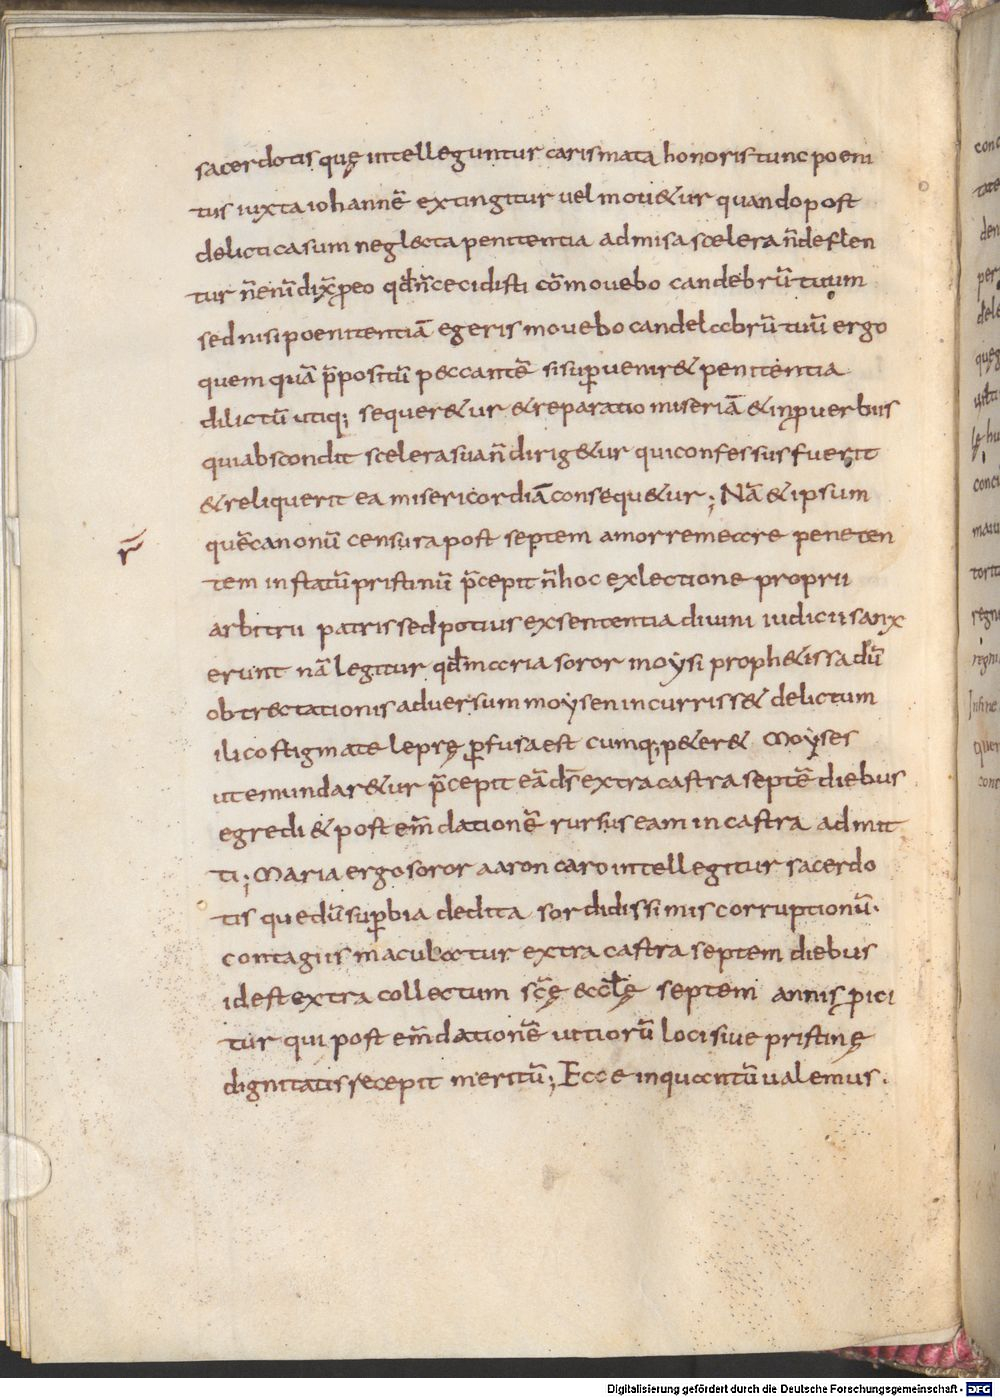 sacerdotis quę intelleguntur carismata honoris tunc poeni
tus iuxta iohannē extingitur uel moti&ur quando post
delicti casum neglecta penitentia admisa scelera n̄ deflen
tur n̄ enī dix̄ p̱ eo qd̄ n̄ cecidisti cōmouebo candebrū tuum
sed nisi poenitentiā egeris mouebo candelabrū tuū ergo
quem quā p̄positū peccantē si sup̱uenir& penitentia
dilictū utiq; sequer&ur & reparatio miseriā & in p̱uerbiis
qui abscondit scelera sua n̄ dirig&ur qui confessus fuerit
& reliquerit ea misericordiā consequ&ur; Nā & ipsum
quē canonū censura post septem amorremecre peneten
tem in statū pristinū p̄cepit n̄ hoc ex lectione proprii
arbitrii patris sed potius ex sententia diuini iudicii sanx
erunt nā legitur qd̄ maria soror moysi proph&issa dū
obtrectationis aduersum moysen incurriss& delictum
ilico stigmate leprę p̱fusa est cumq; p&er& Moyses
ut emundar&ur p̄cepit eā dn̄s extra castra septē diebus
egredi & post em̄dationē rursus eam in castra admit
ti; Maria ergo soror aaron caro intellegitur sacerdo
tis que dū sup̱bia dedita sordidissimis corruptionū.
contagiis maculatur extra castra septem diebus
id est extra collectum sc̄ę &ccl̄ę septem annis p̱ici
tur qui post em̄dationē uitiorū loci siue pristinę
dignitatis recepit meritū; Ecce in quantū ualemus.
Digitalisierung gefördert durch die Deutsche Forschungsgemeinschaft - DFG